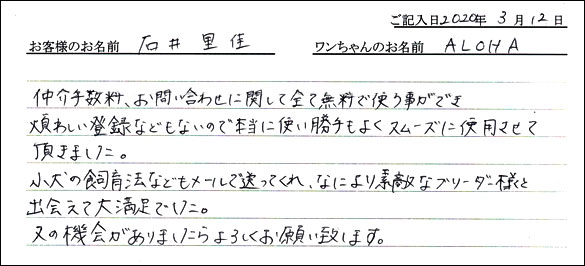 ご記入日2020年 3月12日
お客様のお名前 石井里佳 ワンちゃんのお名前 ALOHA
仲介手数料、お問い合わせに関して全て無料で使う事ができ
煩わしい登録などもないので本当に使い勝手もよくスムーズに使用させて
頂きました。
小犬の飼育法などもメールで送ってくれ、なにより素敵なブリーダー様と
出会えて大満足でした。
又の機会がありましたらよろしくお願い致します。